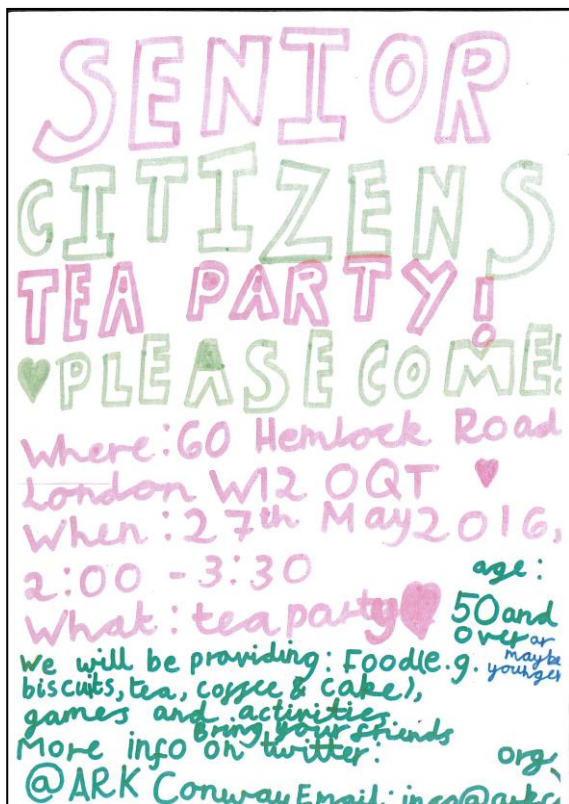 SENIOR
CITIZENS
TEA PARTY!
PLEASE COME!
Where: 60 Hemlock Road
London W12 0QT
When: 27th May 2016,
2:00 - 3:30
What: tea party
age:
50 and
over or
maybe
younger
We will be providing: Food (e.g.
biscuits, tea, coffee & cake),
games and activities
Bring your friends
More info on twitter:
org
@ARK Conway Email: info@arkc